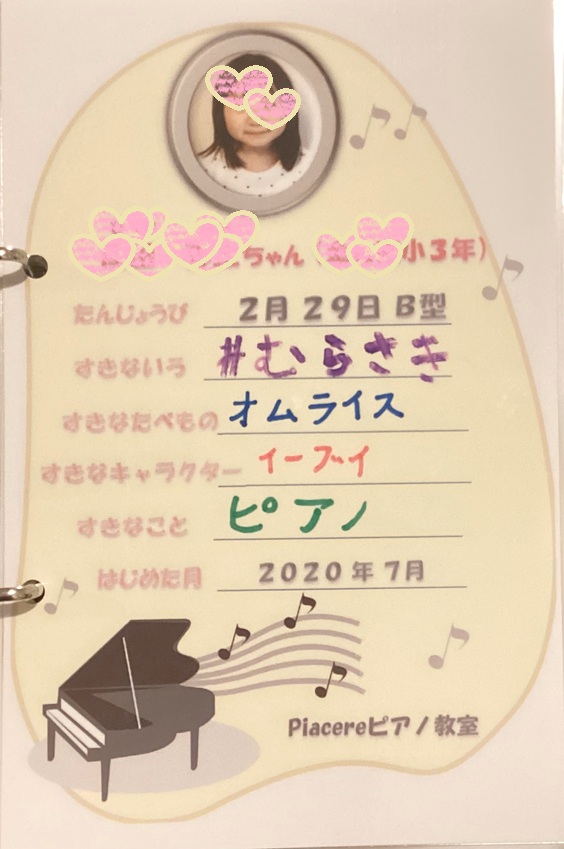 ちゃん( 小3年)
たんじょうび 2月29日 B型
すきないろ #むらさき
すきなたべもの オムライス
すきなキャラクター イーブイ
すきなこと ピアノ
はじめた月 2020年7月
Piacereピアノ教室